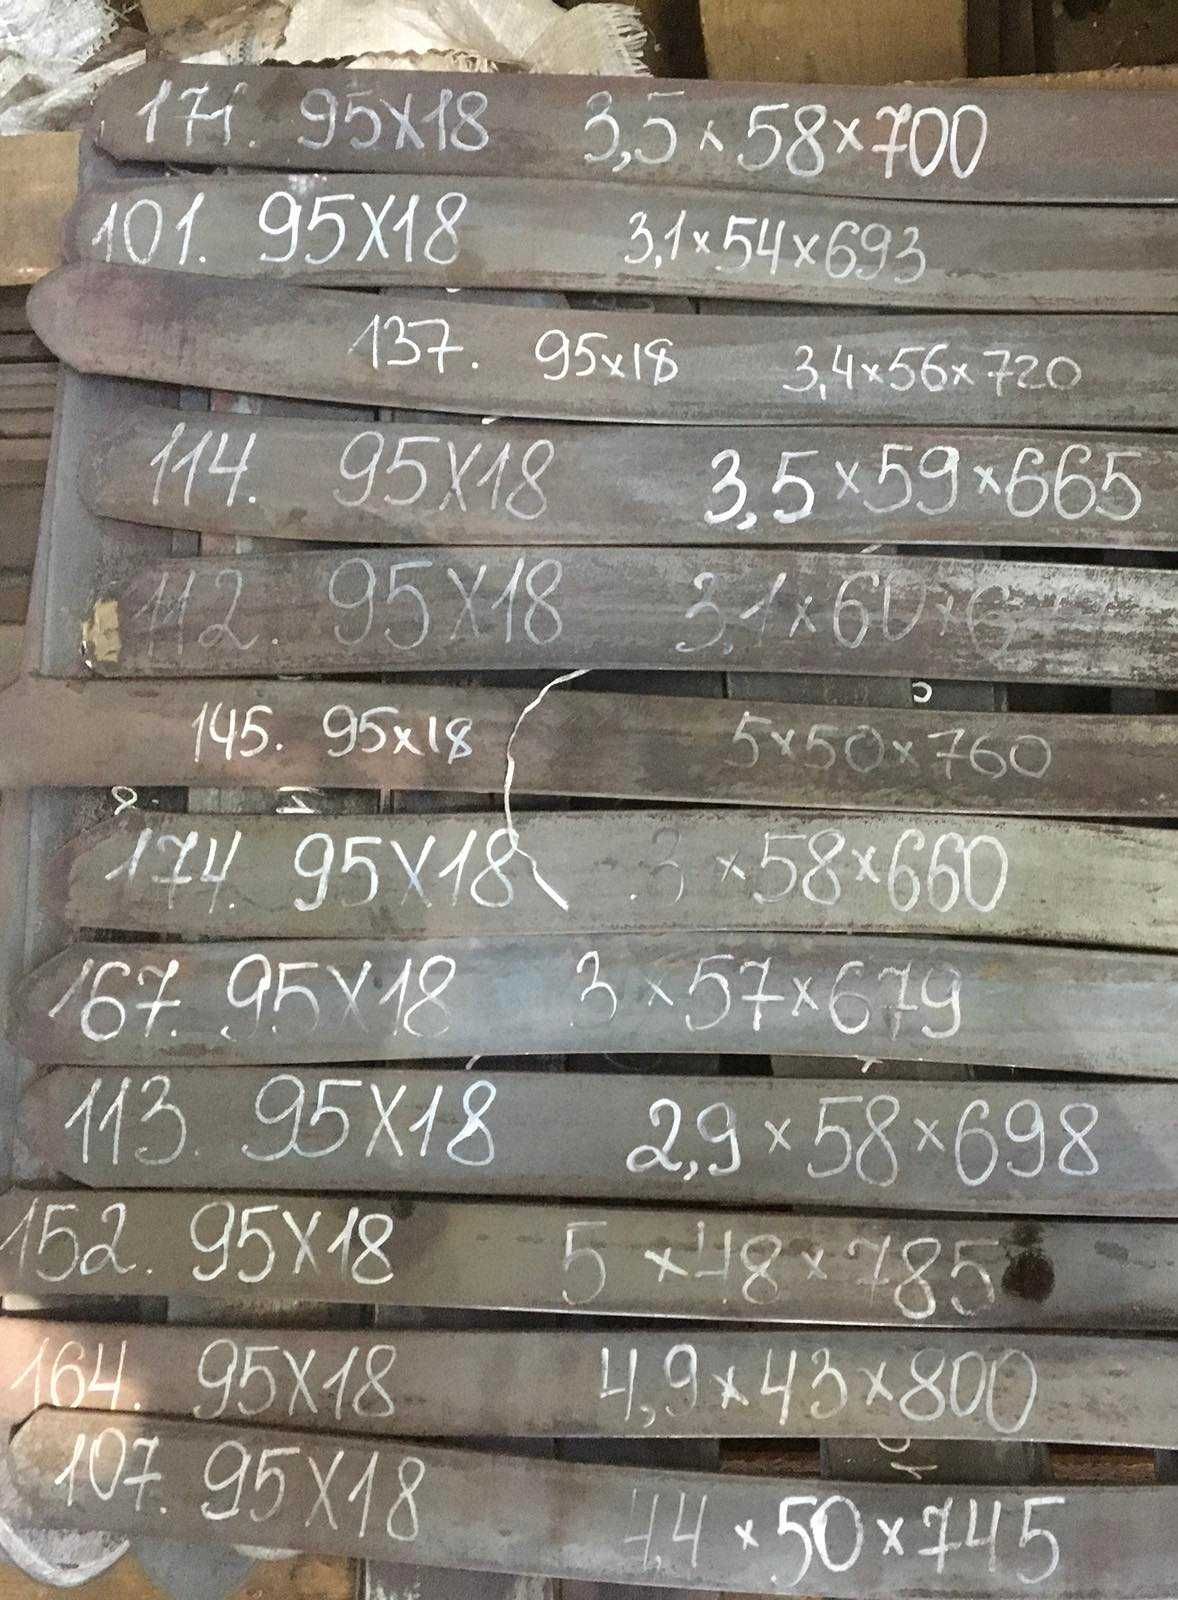 171. 95x18 3,5 x 58 x 700
101. 95x18 3,1 x 54 x 693
137. 95x18 3,4 x 56 x 720
114. 95x18 3,5 x 59 x 665
112. 95x18 3,1 x 60 x
145. 95x18 5 x 50 x 760
174. 95x18 3 x 58 x 660
167. 95x18 3 x 57 x 679
113. 95x18 2,9 x 58 x 698
152. 95x18 5 x 48 x 785
164. 95x18 4,9 x 43 x 800
107. 95x18 x 50 x 745